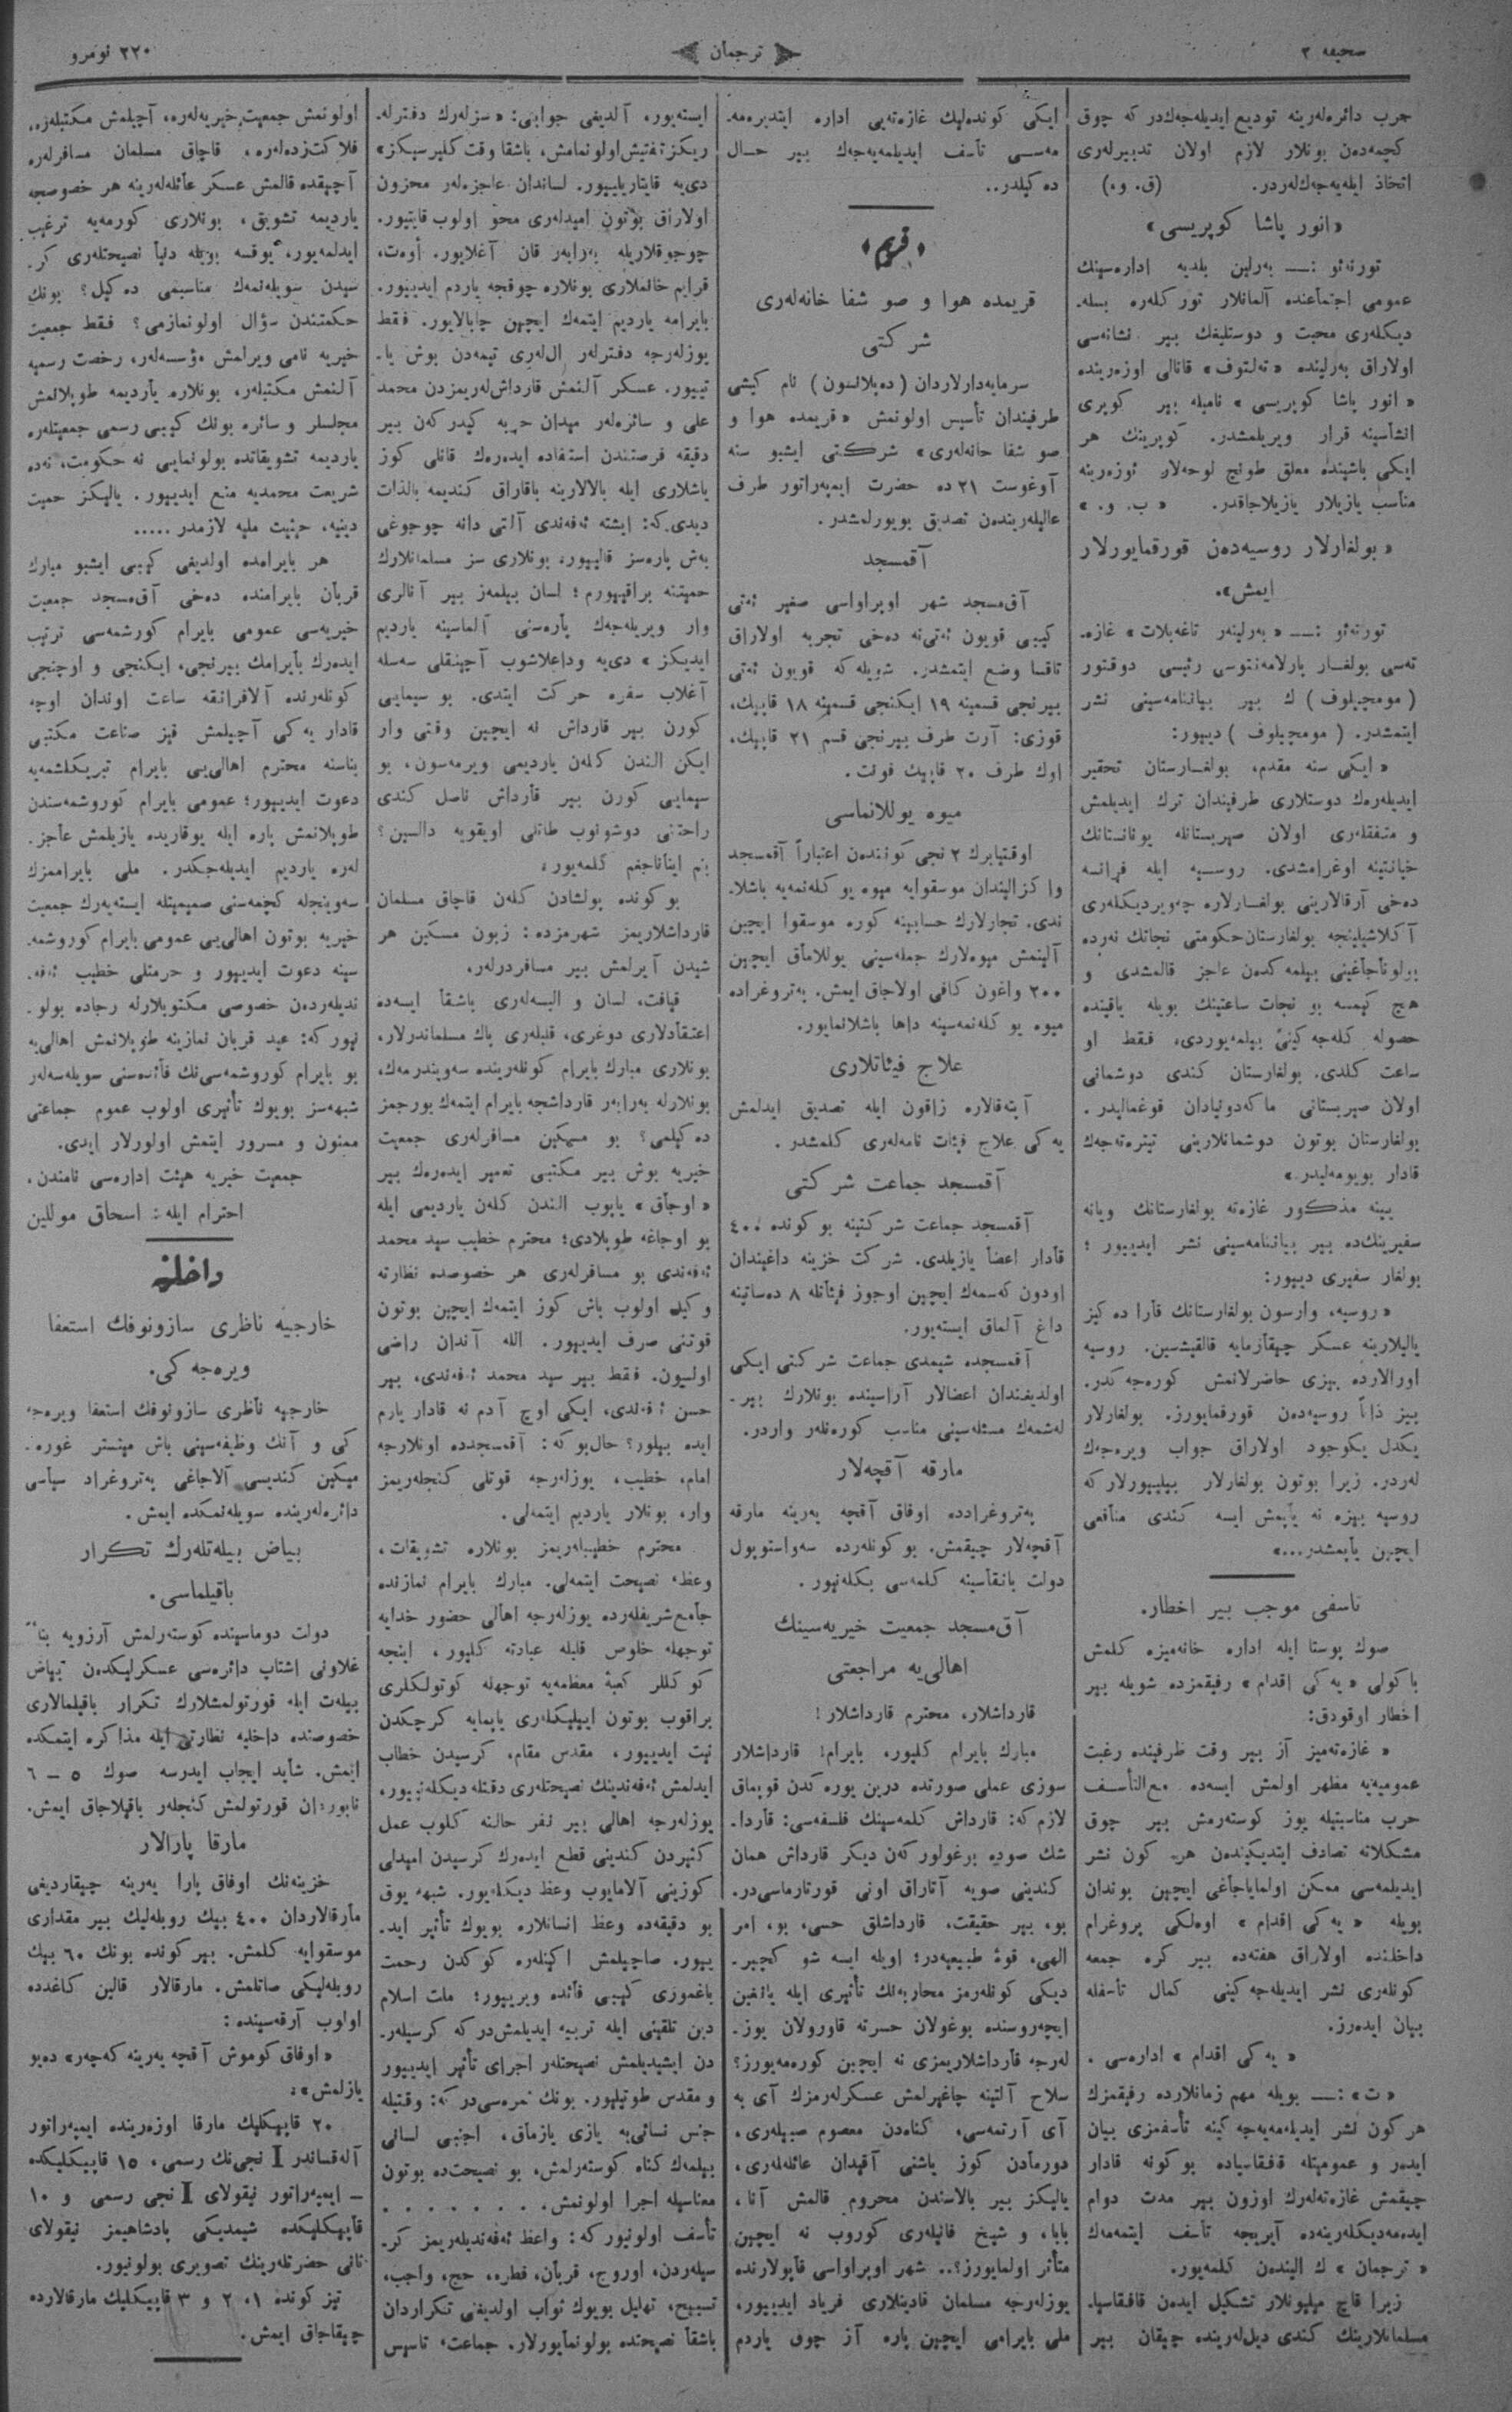 صحیفه ۲
ترجمان
۲۲۰ نومرو
حرب دائره‌لەرینه تودیع ایدیله‌جەك‌در که چوق
کچمەدەن بونلار لازم اولان تدبیرلەری
اتخاذ ایلەیەجەك‌لەردر. (ق. و.)
«انور پاشا کوپریسی»
تورتەئو :— بەرلین بلدیه ادارەسینك
عمومی اجتماعنده آلمانلار تورکلەره بسله-
دیکلەری محبت و دوستلیغك بیر نشانەسی
اولاراق بەرلینده «تەلتوف» قانالی اوزەرینده
«انور پاشا کوپریسی» نامیله بیر کوپری
انشأسینه قرار ویریلمشدر. کوپرینك هر
ایکی باشینده معلق طونج لوحەلار ئوزەرینه
مناسب یازیلار یازیلاجاقدر. «ب. و.»
«بولغارلار روسیەدەن قورقمایورلار
ایمش».
تورتەئو :— «بەرلینەر تاغەبلات» غازه-
تەسی بولغار پارلامەنتوسی رئیسی دوقتور
(مومچیلوف) ك بیر بیاننامەسینی نشر
ایتمشدر. (مومچیلوف) دیپور:
«ایکی سنه مقدم، بولغارستان تحقیر
ایدیلەرەك دوستلاری طرفیندان ترك ایدیلمش
و متفقلەری اولان صربستانله یونانستانك
خیانتینه اوغرامشدی. روسیه ایله فرانسه
دەخی آرقالارینی بولغارلاره چەویردیکلەری
آکلاشیلینجه بولغارستان حکومتی نجاتك نەرده
بولوناجأغینی بیلمەکدەن عاجز قالمشدی و
هیچ کیمسه بو نجات ساعتینك بویله یاقینده
حصوله کلەجەکینی بیلمەیوردی، فقط او
ساعت کلدی. بولغارستان کندی دوشمانی
اولان صربستانی ماکەدونیادان قوغمالیدر.
بولغارستان بوتون دوشمانلارینی تیترەتەجەك
قادار بویومەلیدر.»
یینه مذکور غازەته بولغارستانك ویانه
سفیرینك‌ده بیر بیاننامەسینی نشر ایدییور ؛
بولغار سفیری دیپور:
«روسیه، وارسون بولغارستانك قارا دەکیز
یالیلارینه عسکر چیقأرمایه قالقیشسین. روسیه
اورالارده بیزی حاضرلانمش کورەجەکدر.
بیز ذاتاً روسیەدەن قورقمایورز. بولغارلار
یکدل یکوجود اولاراق جواب ویرەجەك
لەردر. زیرا بوتون بولغارلار بیلییورلار که
روسیه بیزه نه یاپمش ایسه کندی منأفعی
ایچین یاپمشدر...»
تاسفی موجب بیر اخطار.
صوك پوستا ایله اداره خانەمیزه کلمش
باکولی «یەکی اقدام» رفیقمزده شویله بیر
اخطار اوقودق:
«غازەتەمیز آز بیر وقت ظرفینده رغبت
عمومیەیه مظهر اولمش ایسەده مع‌التأسف
حرب مناسبتیله یوز کوستەرمش بیر چوق
مشکلاته تصادف ایتدیکیندەن هر کون نشر
ایدیلمەسی ممکن اولمایاجأغی ایچین بوندان
بویله «یەکی اقدام» اوەلکی پروغرام
داخلنده اولاراق هفتەده بیر کره جمعه
کونلەری نشر ایدیلەجەکینی کمال تأسفله
بیان ایدەرز.
«یەکی اقدام» ادارەسی.
«ت» :— بویله مهم زمانلارده رفیقمزك
هر کون نشر ایدیلەمەیەجەکینه تأسفمزی بیان
ایدەر و عمومیتله قفقاسیاده بوکونه قادار
چیقمش غازەتەلەرك اوزون بیر مدت دوام
ایدەمەدیکلەرینەده آیریجه تأسف ایتمەمەك
«ترجمان» ك الیندەن کلمەیور.
زیرا قاچ میلیونلار تشکیل ایدەن قافقاسیا
مسلمانلارینك کندی دیل‌لەرینده چیقان بیر
ایکی کوندەلیك غازەتەیی اداره ایتدیرەمە-
مەسی تأسف ایدیلمەیەجەك بیر حال
دەکیلدر..
«قریم»
قریمده هوا و صو شفا خانەلەری
شرکتی
سرمایەدارلاردان (دەیلانسون) نام کیشی
طرفیندان تأسیس اولونمش «قریمده هوا و
صو شفا خانەلەری» شرکتی ایشبو سنه
آوغوست ۲۱ ده حضرت ایمپەراتور طرف
عالیلەریندەن تصدیق بویورلمشدر.
آقمسجد
آق‌مسجد شهر اوپراواسی صغیر ئەتی
کیبی قویون ئەتینه دەخی تجربه اولاراق
تاقسا وضع ایتمشدر. شویله‌که قویون ئەتی
بیرنجی قسمینه ۱۹ ایکنجی قسمینه ۱۸ قاپیك،
قوزی: آرت طرف بیرنجی قسم ۲۱ قاپیك،
اوك طرف ۲۰ قاپیك فونت.
میوه یوللانماسی
اوقتیابرك ۲ نجی کونندەن اعتباراً آقمسجد
واکزالیندان موسقوایه میوه یوکلەنمەیه باشلا-
ندی. تجارلارك حسابینه کوره موسقوا ایچین
آلینمش میوەلارك جملەسینی یوللاماق ایچین
۲۰۰ واغون کافی اولاجاق ایمش. پەتروغراده
میوه یوکلەنمەسینه داها باشلانمایور.
علاج فیئاتلاری
آپتەقالاره زاقون ایله تصدیق ایدلمش
یەکی علاج فیئات نامەلەری کلمشدر.
آقمسجد جماعت شرکتی
آقمسجد جماعت شرکتینه بوکونده ۴۰۰
قأدار اعضأ یازیلدی. شرکت خزینه داغیندان
اودون کەسمەك ایچین اوجوز فیئاتله ۸ دەساتینه
داغ آلماق ایستەیور.
آقمسجده شیمدی جماعت شرکتی ایکی
اولدیغندان اعضالار آراسینده بونلارك بیر-
لەشمەك مسئلەسینی مناسب کورەنلەر واردر.
مارقه آقچەلار
پەتروغرادده اوفاق آقچه یەرینه مارقه
آقچەلار چیقمش. بوکونلەرده سەواستوپول
دولت بانقأسینه کلمەسی بکلەنیور.
آق‌مسجد جمعیت خیریه‌سینك
اهالی‌یه مراجعتی
قارداشلار، محترم قارداشلار!
مبارك بایرام کلیور، بایرام! قارداشلار
سوزی عملی صورتده درین یورەکدن قویماق
لازم که: قارداش کلمەسینك فلسفەسی: قأردا-
شك صویه بوغولور کەن دیکر قارداش همان
کندینی صویه آتاراق اونی قورتارماسی‌در.
بو، بیر حقیقت، قارداشلق حسی، بو، امر
الهی، قوۀ طبیعیه‌در؛ اویله ایسه شو کچیر-
دیکی کونلەرمز محاربەنك تأثیری ایله یانغین
ایچەروسنده بوغولان حسرته قاورولان یوز-
لەرجه قأرداشلاریمزی نه ایچین کورەمەیورز؟
سلاح آلتینه چاغیرلمش عسکرلەرمزك آی به
آی آرتمەسی، کناەدن معصوم صبیلەری،
دورمأدن کوز یاشنی آقیدان عائلەلەری،
یالیکز بیر بالاسندن محروم قالمش آنا،
بابا، و شیخ فانیلەری کوروب نه ایچین
متأثر اولمایورز؟.. شهر اوپراواسی قاپولارنده
یوزلەرجه مسلمان قادینلاری فریاد ایدییور،
ملی بایرامی ایچین پاره آز چوق یاردم
ایستەیور، آلدیغی جوابی: «سزلەرك دفترلە-
ریکز تفتیش اولونمامش، باشقا وقت کلیرسیکز»
دیه قایتاریلییور. لساندان عاجزەلەر محزون
اولاراق بوتون امیدلەری محو اولوب قایتیور.
چوجوقلاریله بەرابەر قان آغلایور. أوەت،
قرایم خانملاری بونلاره چوقجه یاردم ایدییور.
بایرامه یاردیم ایتمەك ایچین چابالایور. فقط
یوزلەرجه دفترلەر ال‌لەری تیمەدن بوش یا-
تییور. عسکر آلنمش قارداش‌لەریمزدن محمد
علی و سائرەلەر میدان حربه کیدر کەن بیر
دقیقه فرصتندن استفاده ایدەرەك قانلی کوز
یاشلاری ایله بالالارینه باقاراق کندیمه بالذات
دیدی که: ایشته ئەفەندی آلتی دانه چوجوغی
بەش پارەسز قالییور، بونلاری سز مسلمانلارك
حمیتنه براقییورم ؛ لسان بیلمەز بیر آنالری
وار ویریلەجەك پارەسنی آلماسینه یاردیم
ایدیکز» دیه وداعلاشوب آچینقلی سەسله
آغلاب سفره حرکت ایتدی. بو سیمایی
کورن بیر قارداش نه ایچین وقتی وار
ایکن الندن کلەن یاردیمی ویرمەسون، بو
سیمایی کورن بیر قأرداش ناصل کندی
راحتنی دوشونوب طاتلی اویقویه دالسین؟
بنم اینأناجغم کلمەیور.
بوکونده پولشادن کلەن قاچاق مسلمان
قارداشلاریمز شهرمزده: زبون مسکین هر
شیدن آیرلمش بیر مسافردرلەر.
قیافت، لسان و البسەلەری باشقأ ایسەده
اعتقأدلاری دوغری، قلبلەری پاك مسلماندرلار،
بونلاری مبارك بایرام کونلەرینده سەویندرمەك،
بونلارله بەرابەر قارداشجه بایرام ایتمەك بورجمز
دەکیلمی؟ بو مسکین مسافرلەری جمعیت
خیریه بوش بیر مکتبی تعمیر ایدەرەك بیر
«اوجأق» یاپوب الندن کلەن یاردیمی ایله
بو اوجاغه طوپلادی؛ محترم خطیب سید محمد
ئەفەندی بو مسافرلەری هر خصوصده نظارته
وکیل اولوب باش کوز ایتمەك ایچین بوتون
قوتنی صرف ایدییور. الله آندان راضی
اولسون. فقط بیر سید محمد ئەفەندی، بیر
حسن ئەفەندی، ایکی اوچ آدم نه قادار یارم
ایده بیلور؟ حال‌بوکه: آقمسجدده اونلارجه
امام، خطیب، یوزلەرجه قوتلی کنجلەریمز
وار، بونلار یاردیم ایتمەلی.
محترم خطیبلەریمز بونلاره تشویقات،
وعظ، نصیحت ایتمەلی. مبارك بایرام نمازنده
جأمع شریفلەرده یوزلەرجه اهالی حضور خدایه
توجهله خلوص قلبله عبادته کلیور، اینجه
کوکللر کعبۀ معظمەیه توجهله کوتولکلری
براقوب بوتون ایییلیکلەری یاپمایه کرچکدن
نیت ایدییور، مقدس مقام، کرسیدن خطاب
ایدلمش ئەفەندینك نصیحتلەری دقتله دیکلەنییور،
یوزلەرجه اهالی بیر نفر حالنه کلوب عمل
کثیردن کندینی قطع ایدەرك کرسیدن امیدلی
کوزینی آلامایوب وعظ دیکلەیور. شبهه یوق
بو دقیقەده وعظ انسانلاره بویوك تأثیر اید-
ییور. صاچیلمش اکینلەره کوکدن رحمت
یاغموری کیبی فأئده ویرییور؛ ملت اسلام
دین تلقینی ایله تربیه ایدیلمش‌درکه کرسیلەر-
دن ایشیدیلمش نصیحتلەر اجرای تأثیر ایدییور
و مقدس طوتیلیور. بونك ثمرەسی‌در که: وقتیله
جنس نسائی‌یه یازی یازماق، اجنبی لسانی
بیلمەك کناه کوستەرلمش، بو نصیحت‌ده بوتون
معناسیله اجرا اولونمش. . . . . . . . . .
تأسف اولونیور که: واعظ ئەفەندیلەریمز کر-
سیلەردن، اوروج، قربأن، فطره، حج، واجب،
تسبیح، تهلیل بویوك ثواب اولدیغی تکراردان
باشقأ نصیحتده بولونمأیورلار. جماعت، تاسیس
اولونمش جمعیت خیریەلەره، آچیلمش مکتبلەره،
فلاکتزدەلەره، قاچاق مسلمان مسافرلەره
آچیقده قالمش عسکر عأئلەلەرینه هر خصوصجه
یاردیمه تشویق، بونلاری کورمەیه ترغیب
ایدلمەیور، یوقسه بویله دنیأ نصیحتلەری کر-
سیدن سویلەنمەك مناسبمی دەکیل؟ بونك
حکمتندن سؤال اولونمازمی؟ فقط جمعیت
خیریه نامی ویرلمش مؤسسەلەر، رخصت رسمیه
آلنمش مکتبلەر، بونلاره یأردیمه طوپلانمش
مجلسلر و سائره بونك کیبی رسمی جمعیتلەره
یاردیمه تشویقاتده بولونمایی نه حکومت، نەده
شریعت محمدیه منع ایدییور. یالیکز حمیت
دینیه، حمیت ملیه لازمدر .....
هر بایرامده اولدیغی کیبی ایشبو مبارك
قربأن بایرامنده دەخی آق‌مسجد جمعیت
خیریەسی عمومی بایرام کورشمەسی ترتیب
ایدەرك بأیرامك بیرنجی، ایکنجی و اوچنجی
کونلەرنده آلافرانقه ساعت اوندان اوچه
قادار یەکی آچیلمش قیز صناعت مکتبی
بناسنه محترم اهالی‌یی بایرام تبریکلشمەیه
دعوت ایدییور؛ عمومی بایرام کوروشمەسندن
طوپلانمش پاره ایله یوقاریده یازیلمش عأجز-
لەره یاردیم ایدیلەجکدر. ملی بایراممزك
سەوینجله کچمەسنی صمیمیتله ایستەیەرك جمعیت
خیریه بوتون اهالی‌یی عمومی بایرام کوروشمە-
سینه دعوت ایدییور و حرمتلی خطیب ئەفە-
ندیلەردەن خصوصی مکتوبلارله رجاده بولو-
نیور که: عید قربان نمازینه طوپلانمش اهالی‌یه
بو بایرام کوروشمەسی‌نك فأئدەسنی سویلەسەلەر
شبهەسز بویوك تأثیری اولوب عموم جماعتی
ممنون و مسرور ایتمش اولورلار ایدی.
جمعیت خیریه هیئت ادارەسی نامندن،
احترام ایله: اسحاق موللین
داخلیه
خارجیه ناظری سازونوفك استعفا
ویرەجەکی.
خارجیه نأظری سازونوفك استعفا ویرەجە-
کی و آنك وظیفەسینی باش مینستر غوره-
میکین کندیسی آلاجاغی پەتروغراد سیأسی
دائرەلەرینده سویلەنمکده ایمش.
بیاض بیلەتلەرك تکرار
باقیلماسی.
دولت دوماسینده کوستەرلمش آرزویه بنأً
غلاونی اشتاب دائرەسی عسکرلیکدەن بیاض
بیلەت ایله قورتولمشلارك تکرار باقیلمالاری
خصوصنده داخلیه نظارتی ایله مذاکره ایتمکده
ایمش. شأید ایجاب ایدرسه صوك ۵ – ۶
نابوردان قورتولمش کنجلەر باقیلاجاق ایمش.
مارقا پارالار
خزینەنك اوفاق پارا یەرینه چیقاردیغی
مأرقالاردان ۴۰۰ بیك روبلەلیك بیر مقداری
موسقوایه کلمش. بیر کونده بونك ۶۰ بیك
روبلەلیکی صاتلمش. مارقالار قالین کاغدده
اولوب آرقەسینده:
«اوفاق کوموش آقچه یەرینه کەچەر» دەیو
یازلمش».
۲۰ قاپیکلیك مارقا اوزەرینده ایمپەراتور
آلەقساندر I نجی‌نك رسمی، ۱۵ قاپیکلیکده
– ایمپەراتور نیقولای I نجی رسمی و ۱۰
قأپیکلیکده شیمدیکی پادشاهیمز نیقولای
ثانی حضرتلەرینك تصویری بولونیور.
تیز کونده ۱، ۲ و ۳ قاپیکلیك مارقالارده
چیقاجاق ایمش.